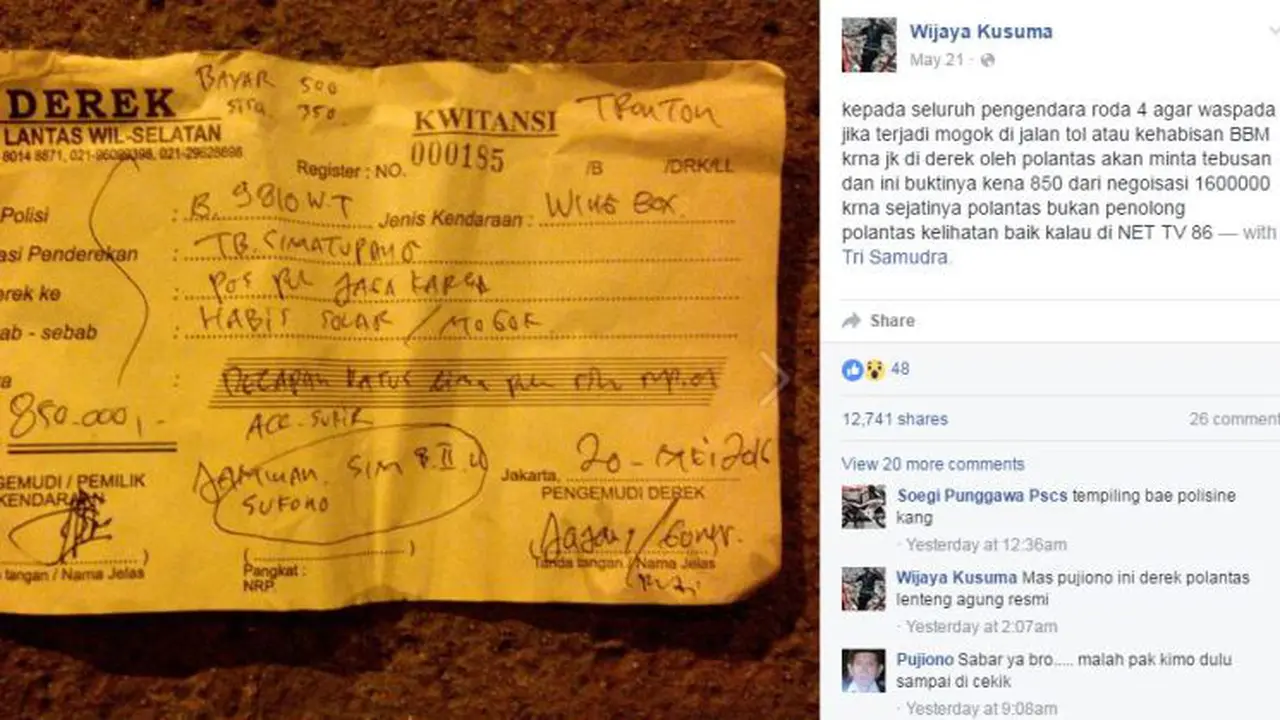 DEREK
LANTAS WIL-SELATAN
8014 8871, 021-96099398, 021-29628698
BAYAR 500
SISA 350
KWITANSI
TRONTON
000185
Register : NO. /B /DRK/LL
Polisi : B. 9810 WT Jenis Kendaraan : WING BOX
asi Penderekan : TB. SIMATUPANG
erek ke : POS PU JASA
ab - sebab : HABIS SOLAR / MOGOK
a : DELAPAN RATUS LIMA
850.000,-
ACC. SUPIR
JAMINAN SIM B.II.U
SUKONO
Jakarta, 20 - MEI 2016
GEMUDI / PEMILIK
KENDARAAN
PENGEMUDI DEREK
tangan / Nama Jelas
Pangkat :
NRP
Tanda tangan / Nama Jelas
Wijaya Kusuma
May 21 ·
kepada seluruh pengendara roda 4 agar waspada
jika terjadi mogok di jalan tol atau kehabisan BBM
krna jk di derek oleh polantas akan minta tebusan
dan ini buktinya kena 850 dari negoisasi 1600000
krna sejatinya polantas bukan penolong
polantas kelihatan baik kalau di NET TV 86 — with
Tri Samudra.
Share
48
12,741 shares
26 comment
View 20 more comments
Soegi Punggawa Pscs tempiling bae polisine
kang
· Yesterday at 12:36am
Wijaya Kusuma Mas pujiono ini derek polantas
lenteng agung resmi
· Yesterday at 2:07am
Pujiono Sabar ya bro..... malah pak kimo dulu
sampai di cekik
· Yesterday at 9:08am